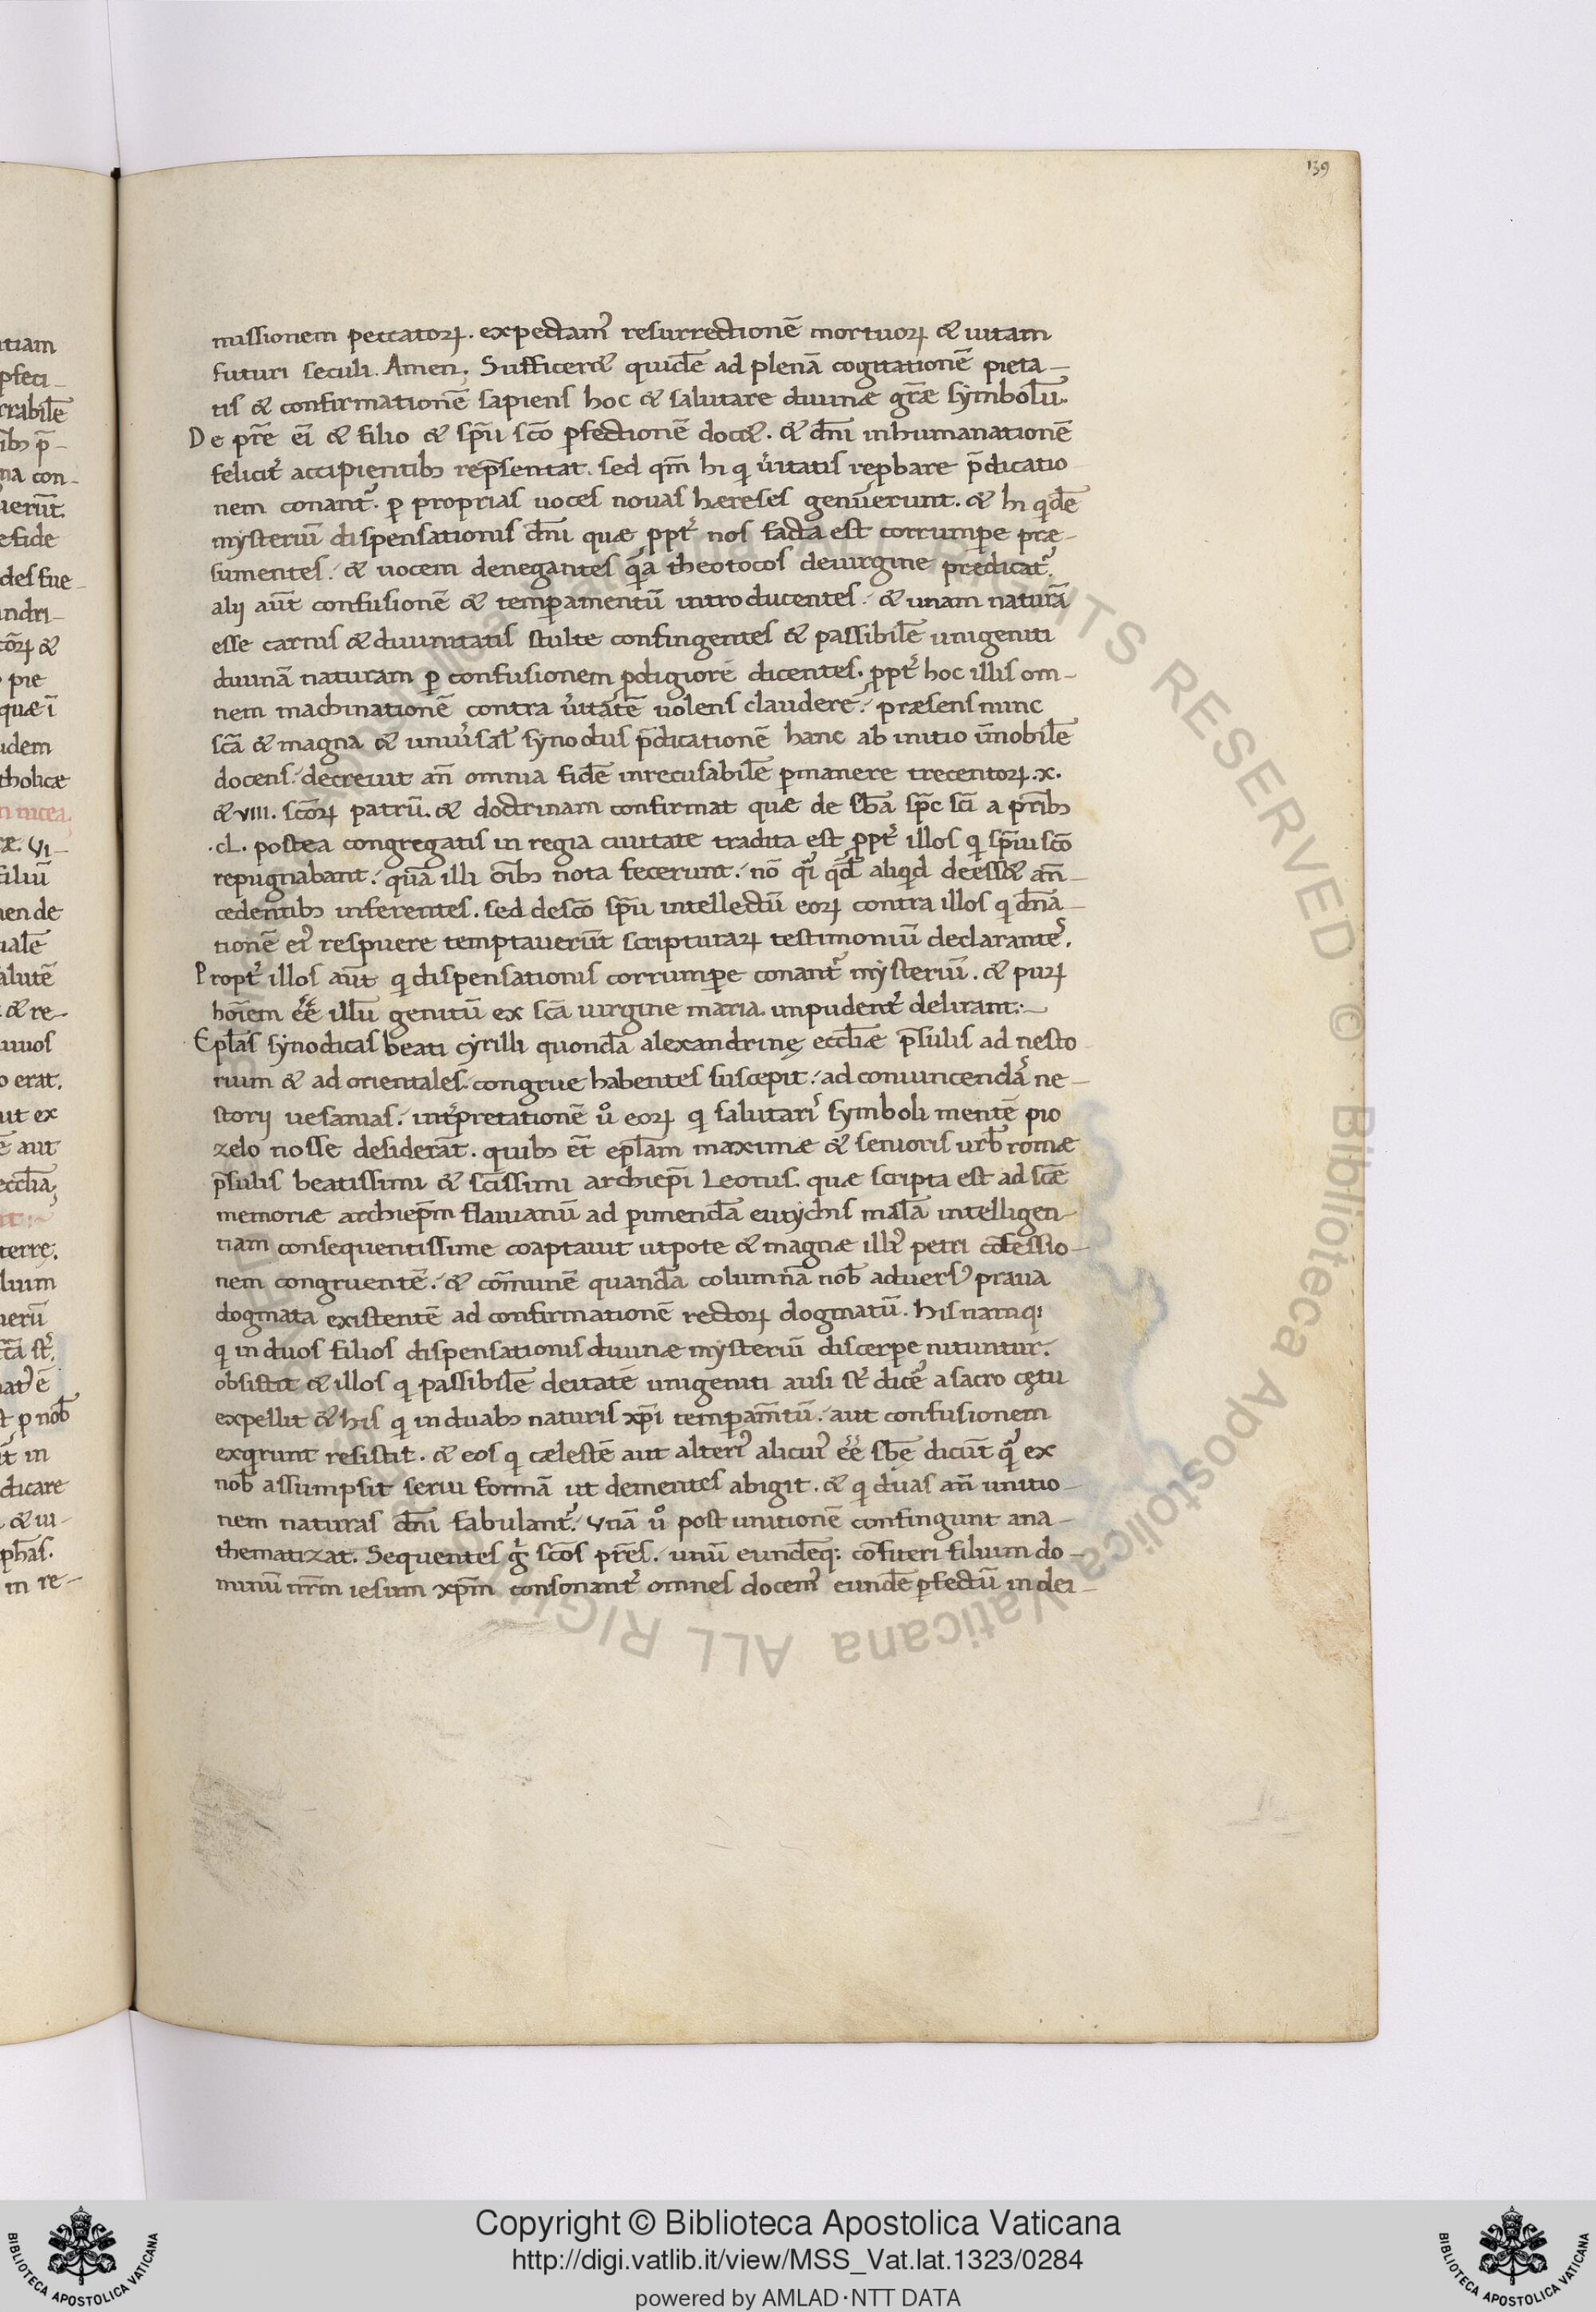 139
missionem peccatoꝝ. expectam᾽ resurrectionē mortuoꝝ & uitam
futuri seculi. Amen. Sufficer& quidē ad plenā cogitationē pieta-
tis & confirmationē sapiens hoc & salutare diuinæ grǣ symbolū.
De prē ei & filio & spū sc̄o ꝑfectionē doc&. & dn̄i inhumanationē
felicit᾽ accipientibꝫ rep̄sentat. sed qm̄ hi q u᾽itatis rep̱bare p̄dicatio
nem conant᾽. ꝑ proprias uoces nouas hæreses genuerunt. & hi qdē
mysteriū dispensationis dn̄i quæ ppt᾽ nos facta est corrumpe præ-
sumentes. & uocem denegantes qa theotocos deuirgine predicat᾽.
alij aūt confusionē & temꝑamentū introducentes. & unam naturā
esse carnis & diuinitatis stulte confingentes & passibilē unigeniti
diuinā naturam ꝑ confusionem pdigiorē dicentes. ppt᾽ hoc illis om-
nem machinationē contra u᾽itatē uolens claudere. præsens nunc
sc̄a & magna & uniu᾽sal᾽ synodus p̄dicationē hanc ab initio īmobilē
docens. decreuit an̄ omnia fidē inrecusabilē ꝑmanere trecentoꝝ.x.
& VIII. sc̄oꝝ patrū. & doctrinam confirmat quæ de sb̄a sp̄c sc̄i a prībꝫ
.cL. postea congregatis in regia ciuitate tradita est ppt᾽ illos q sp̄iu sc̄o
repugnabant. quā illi oībꝫ nota fecerunt. nō q᾽i qd̄ aliqd deess& an̄-
cedentibꝫ inferentes. sed desc̄o spū intellectū eoꝝ contra illos q dn̄a-
tionē ei᾽ respuere temptauerūt scripturaꝝ testimoniū declarante᾽.
Propt᾽ illos aūt q dispensationis corrumpe conant᾽ mysteriū. & puꝝ
hoīem ēē illū genitū ex sc̄a uirgine maria. impudent᾽ delirant.
Epl̄as synodicas beati cyrilli quondā alexandrinę eccl̄iæ p̄sulis ad nesto
rium & ad orientales. congrue habentes suscepit. ad conuincendā᾽ ne-
storij uesanias. int᾽pretationē u̇ eoꝝ q salutari᾽ symboli mentē pio
zelo nosse desiderāt. quibꝫ ēt epl̄am maximæ & senioris urb̄ romæ
p̄sulis beatissimi & sc̄issimi archiep̄i Leonis. quæ scripta est ad sc̄ē
memoriæ archiep̄m flauianū ad ꝑimendā eutychis malā intelligen-
tiam consequentissime coaptauit utpote & magnæ illi᾽ petri cōfessio-
nem congruentē. & com̄unē quandā columnā nob̄ aduers᾽ praua
dogmata existentē ad confirmationē rectoꝝ dogmatū. his namq;
q in duos filios dispensationis diuinæ mysteriū discerpe nituntur.
obsistit & illos q passibilē deitatē unigeniti ausi st᾽ dicē᾽ a sacro cętu
expellit & his q in duabꝫ naturis xp̄i temꝑam̄tū. aut confusionem
exqrunt resistit. & eos q cælestē aut alteri᾽ alicui᾽ ēē sb̄ę dicūt q᾽ ex
nob̄ assumpsit serui formā ut dementes abigit. & q duas an̄ unitio-
nem naturas dn̄i fabulant᾽. Vnā u̇ post unitionē confingunt ana-
thematizat. Sequentes g᾽ sc̄os prēs. unū eundēq; cōfiteri filium do-
minū nr̄m iesum xp̄m consonant᾽ omnes docem᾽ eundē ꝑfectū in dei-
ALL RIGHTS RESERVED © Biblioteca Apostolica Vaticana
Copyright © Biblioteca Apostolica Vaticana
http://digi.vatlib.it/view/MSS_Vat.lat.1323/0284
powered by AMLAD·NTT DATA
BIBLIOTECA APOSTOLICA VATICANA
BIBLIOTECA APOSTOLICA VATICANA